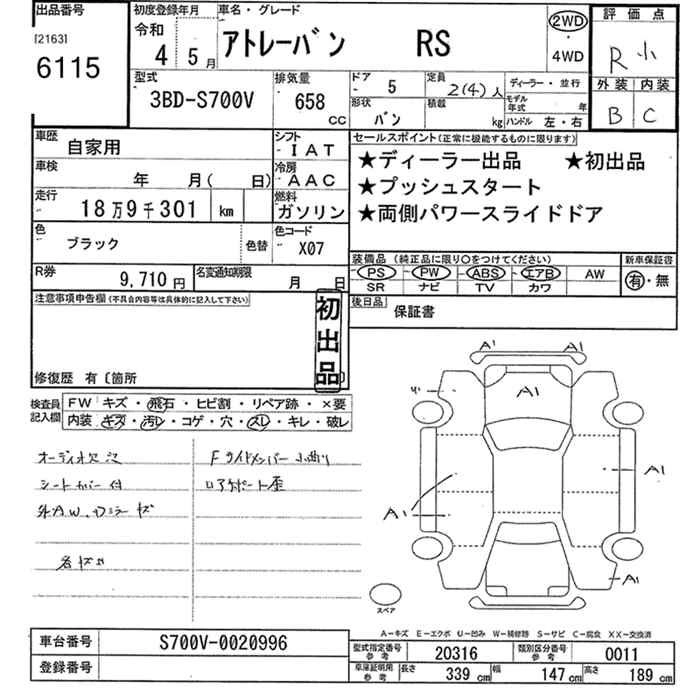 出品番号
[2163]
6115
初度登録年月
令和
4 5月
車名・グレード
アトレーバン RS
2WD
・
4WD
評価点
R 小
外装 内装
B C
型式
3BD-S700V
排気量
658
CC
ドア
5
形状
バン
定員
2(4)人
積載
kg
ディーラー・並行
モデル年式 年
ハンドル 左・右
車歴
自家用
シフト
IAT
車検
年 月( 日)
冷房
AAC
走行
18万9千301 km
燃料
ガソリン
色
ブラック
色替
色コード
X07
R券
9,710円
名変通知期限
月 日
セールスポイント(正常に機能するものに限ります)
★ディーラー出品 ★初出品
★プッシュスタート
★両側パワースライドドア
装備品 (純正品に限り○をつけてください)
PS PW ABS エアB AW
SR ナビ TV カワ
新車保証書
有・無
後日品
保証書
注意事項申告欄(不具合内容等は具体的に記入して下さい)
初出品
修復歴 有〔箇所
検査員記入欄
FW キズ・飛石・ヒビ割・リペア跡・×要
内装 キズ・汚レ・コゲ・穴・スレ・キレ・破レ
オーディオ欠次
シートカバー付
外A.W.ワミラーキズ
各キズ凹
Fサイドメンバー小曲り
ロアサポート歪
A1 A1
A1
A1
A1
A1
スペア
A-キズ E-エクボ U-凹み W-補修跡 S-サビ C-腐食 XX-交換済
車台番号
S700V-0020996
登録番号
型式指定番号
参考
20316
類別区分番号
参考
0011
車庫証明用
参考
長さ
339 cm
幅
147 cm
高さ
189 cm